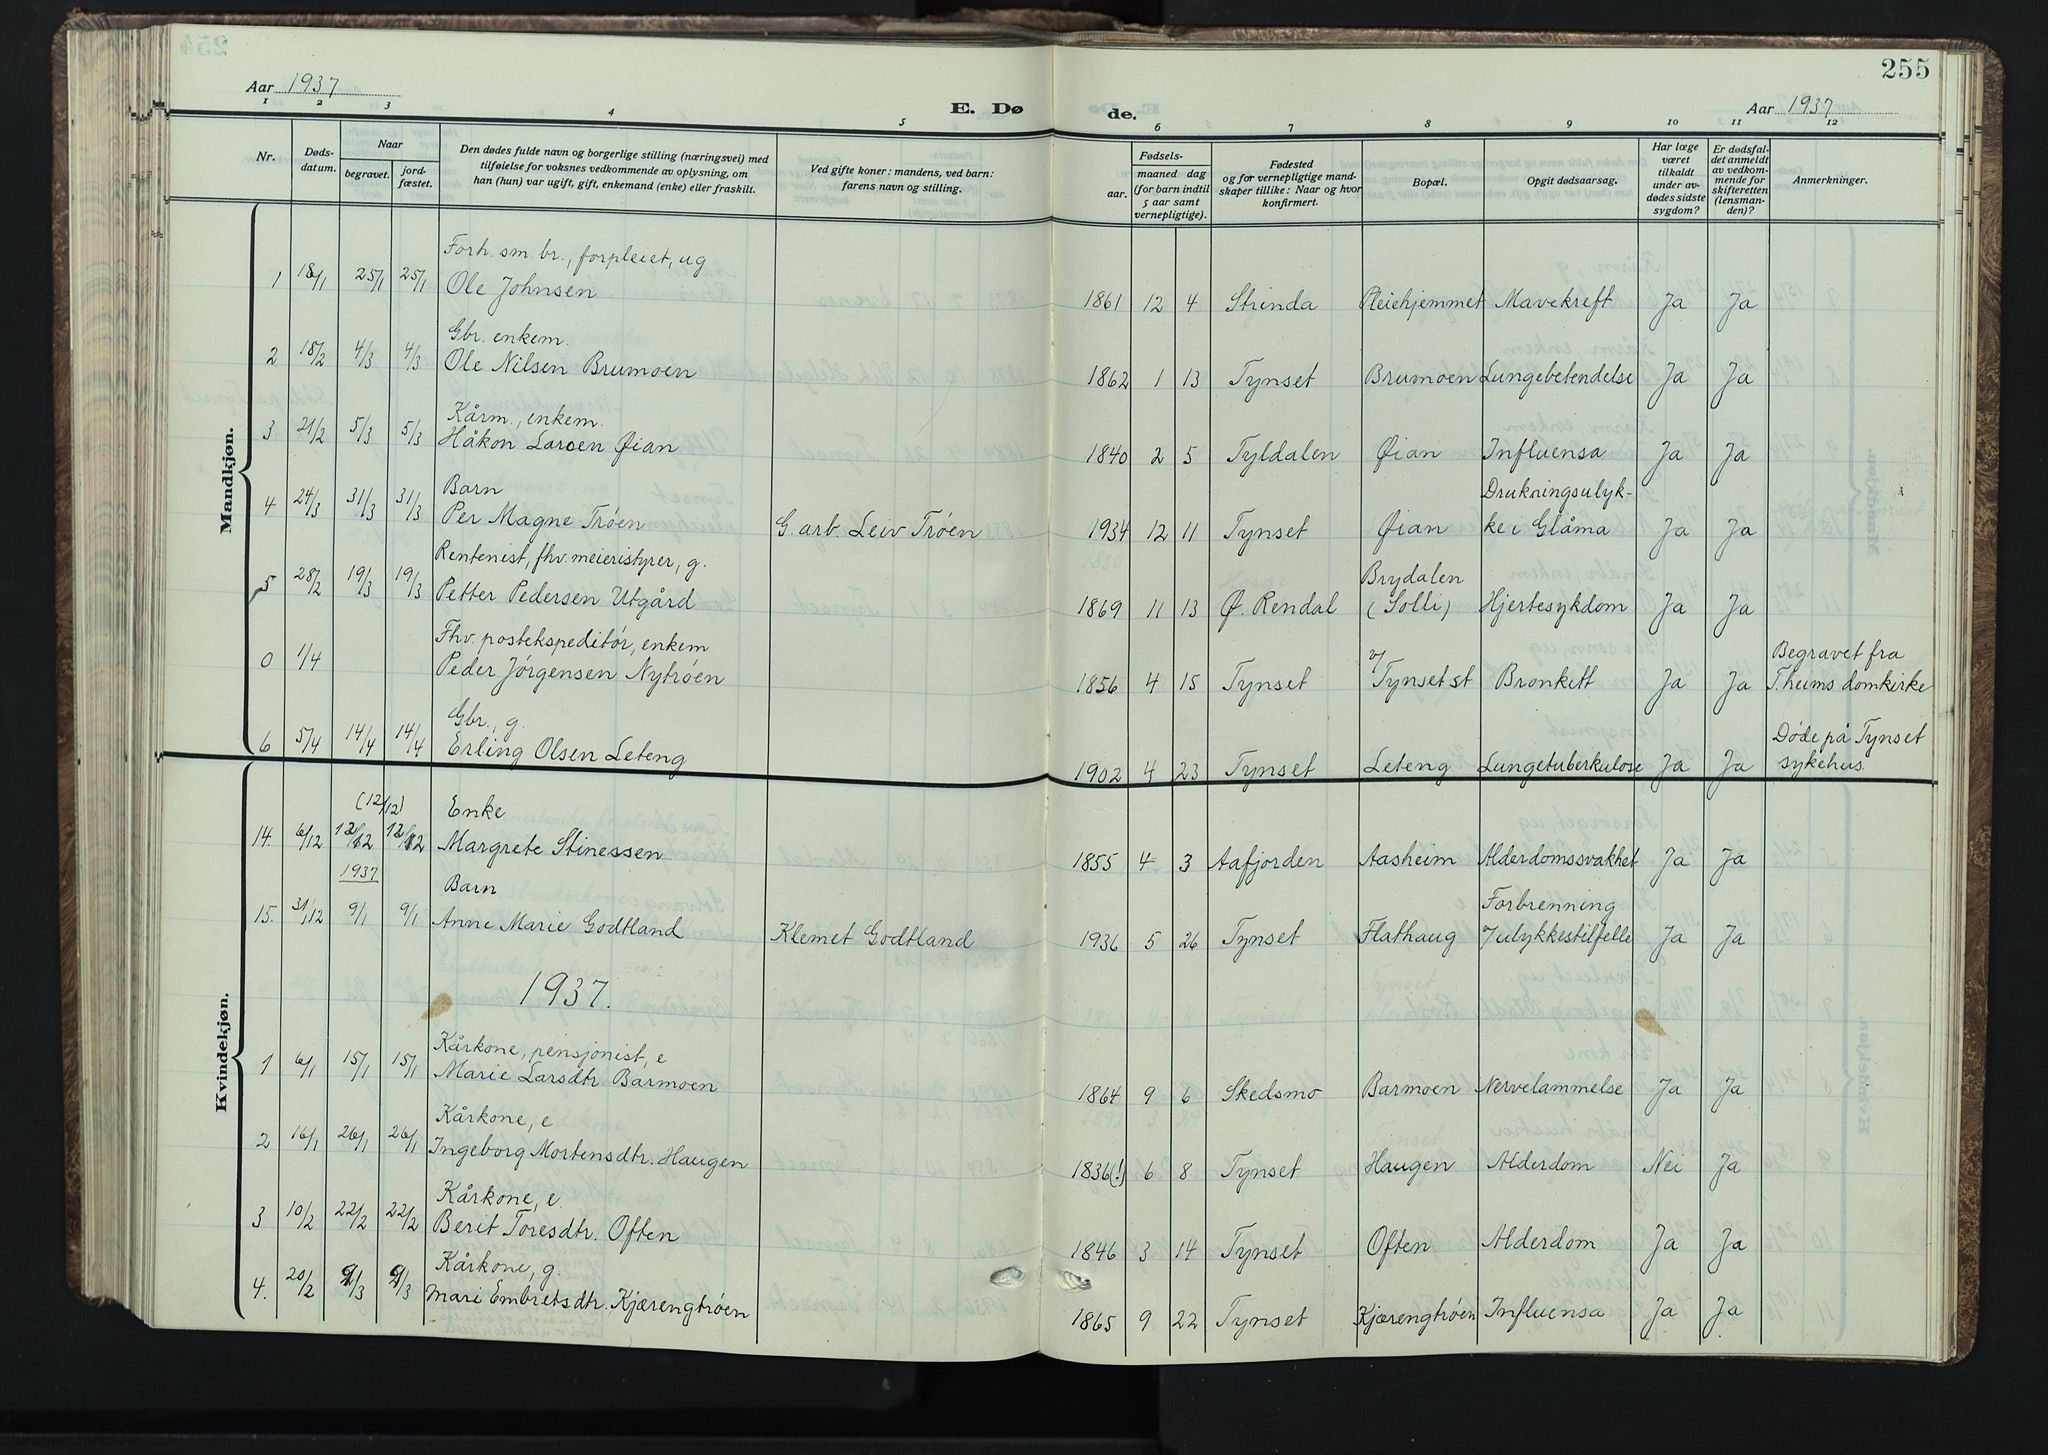 255
Aar 1937
E. Dø
de.
Aar 1937
1 2 3 4 5 6 7 8 9 10 11 12
Nr.
Døds-
datum.
Naar
begravet.
jord-
fæstet.
Den dødes fulde navn og borgerlige stilling (næringsvei) med
tilføielse for voksnes vedkommende av oplysning, om
han (hun) var ugift, gift, enkemand (enke) eller fraskilt.
Ved gifte koner: mandens, ved barn:
farens navn og stilling.
Fødsels-
aar. maaned dag
(for barn indtil
5 aar samt
vernepligtige).
Fødested
og for vernepligtige mand-
skaper tillike: Naar og hvor
konfirmert.
Bopæl.
Opgit dødsaarsag.
Har læge
været
tilkaldt
under av-
dødes sidste
sygdom?
Er dødsfal-
det anmeldt
av vedkom-
mende for
skifteretten
(lensman-
den)?
Anmerkninger.
Mandkjøn.
Forh. sm. br., forpleiet, ug
1 18/1 25/1 25/1 Ole Johnsen 1861 12 4 Strinda Pleiehjemmet Mavekreft Ja Ja
Gbr. enkem.
2 18/2 4/3 4/3 Ole Nilsen Brumoen 1862 1 13 Tynset Brumoen Lungebetendelse Ja Ja
Kårm., enkem.
3 21/2 5/3 5/3 Håkon Larsen Øian 1840 2 5 Tyldalen Øian Influensa Ja Ja
Barn Drukningsulyk-
4 24/3 31/3 31/3 Per Magne Trøen G. arb. Leiv Trøen 1934 12 11 Tynset Øian ke i Glåma Ja Ja
Rentenist, fhv. meieristyrer, g. Brydalen
5 28/2 19/3 19/3 Petter Pedersen Utgård 1869 11 13 Ø. Rendal (Solli) Hjertesykdom Ja Ja
Fhv. postekspeditør, enkem Begravet fra
0 1/4 Peder Jørgensen Nytrøen 1856 4 15 Tynset v/ Tynset st Bronkitt Ja Ja T.heims domkirke
Gbr., g. Døde på Tynset
6 5/4 14/4 14/4 Erling Olsen Leteng 1902 4 23 Tynset Leteng Lungetuberkulose Ja Ja sykehus.
Kvindekjøn.
(12/12) Enke
14. 6/12 12/12 12/12 Margrete Stinessen 1855 4 3 Aafjorden Aasheim Alderdomssvakhet Ja Ja
1937 Barn Forbrenning
15. 31/12 9/1 9/1 Anne Marie Godtland Klemet Godtland 1936 5 26 Tynset Flathaug Julykkestilfelle Ja Ja
1937.
Kårkone, pensjonist, e
1 6/1 15/1 15/1 Marie Larsdtr. Barmoen 1864 9 6 Skedsmo Barmoen Nervelammelse Ja Ja
Kårkone, e
2 16/1 26/1 26/1 Ingeborg Mortensdtr. Haugen 1836(!) 6 8 Tynset Haugen Alderdom Nei Ja
Kårkone, e.
3 10/2 22/2 22/2 Berit Toresdtr. Often 1846 3 14 Tynset Often Alderdom Ja Ja
Kårkone, g.
4. 20/2 9/3 9/3 Mari Embretsdtr. Kjærengtrøen 1865 9 22 Tynset Kjærengtrøen Influensa Ja Ja